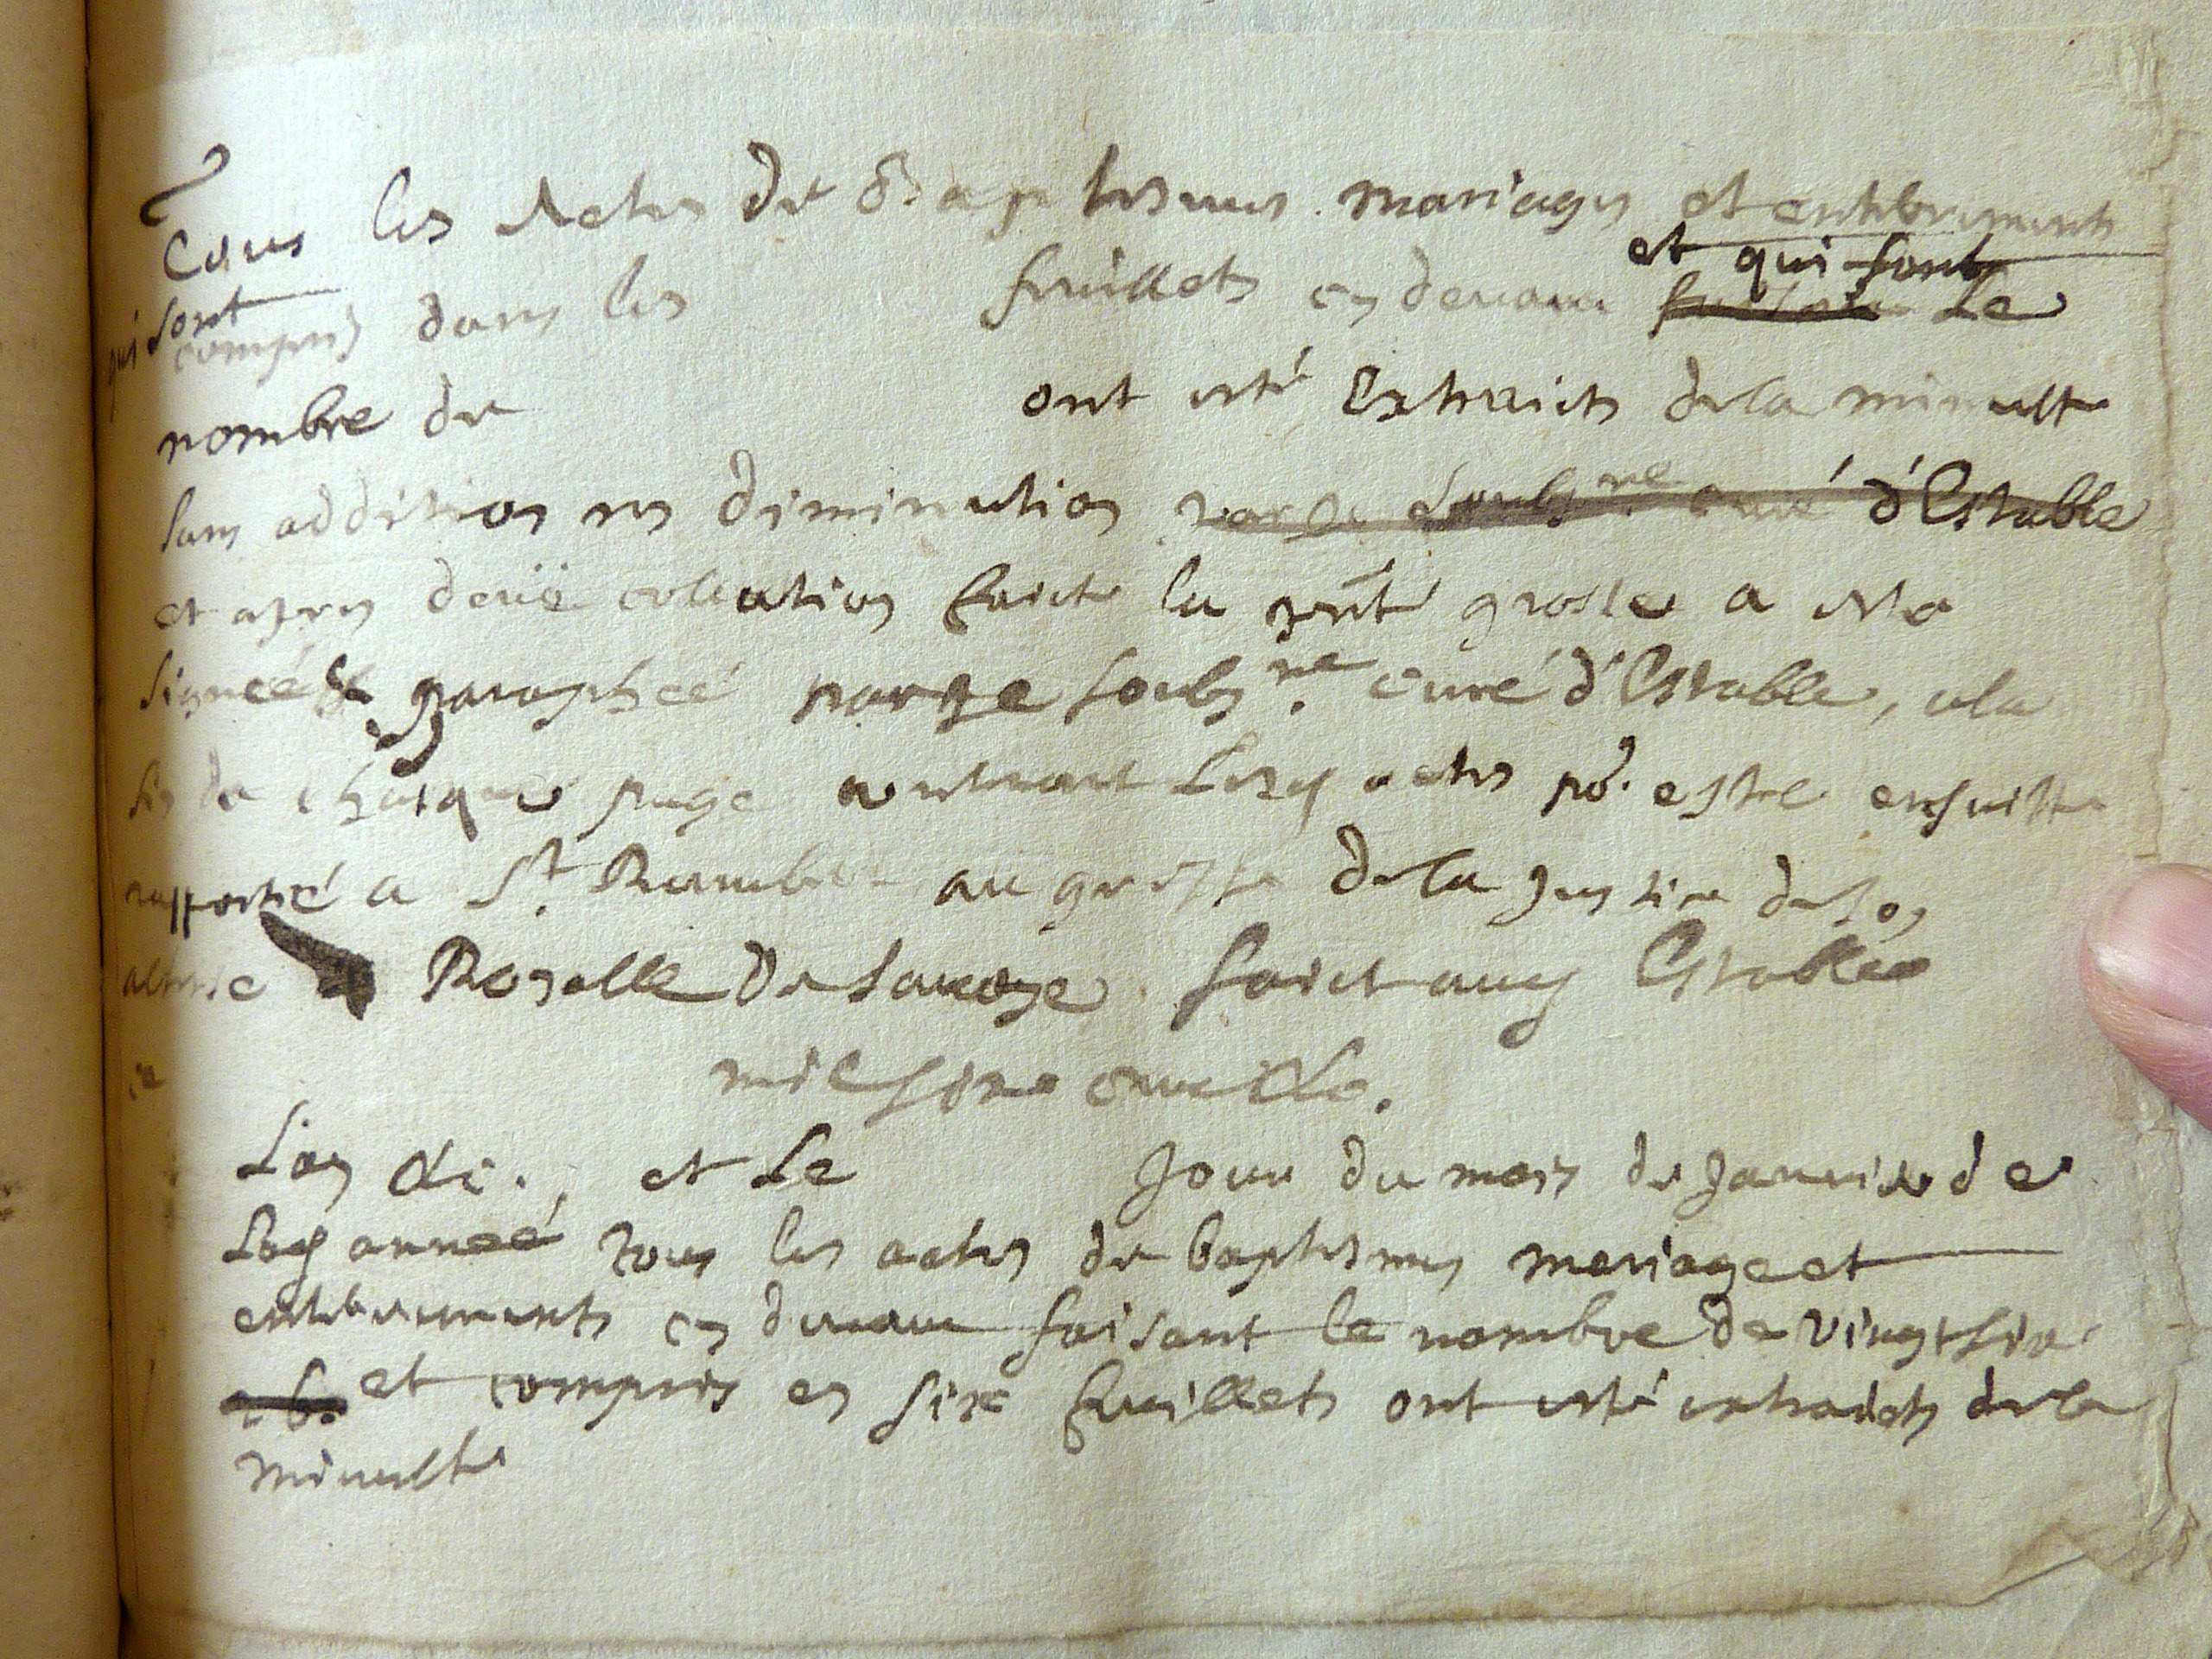 Tous les Actes de Baptesmes mariages et enterrements
et qui font
qui sont
compris dans les feuillets cy devant Le
nombre de ont esté Extraicts de la minutte
sans addition ny diminution par le soubs.ne curé d'Estable
et apres deüe colation faicte la pnte grosse a esté
signeé & paraphéé par le soubs.ne curé d'Estable, a la
fin de chasque page contenant lesq actes po.r estre ensuitte
rapporté a St. Rambert au greffe de la Justice de son
altesse Royalle De Savoye faict aud Estable
ce
mil six cent
L'an &c., et Le Jour du mois de Janvier de
Lad anneé tous les actes de baptesmes mariage et
enterrements cy devant faisant le nombre de vingt six
et compris en six feuillets ont esté extraicts de la
minutte